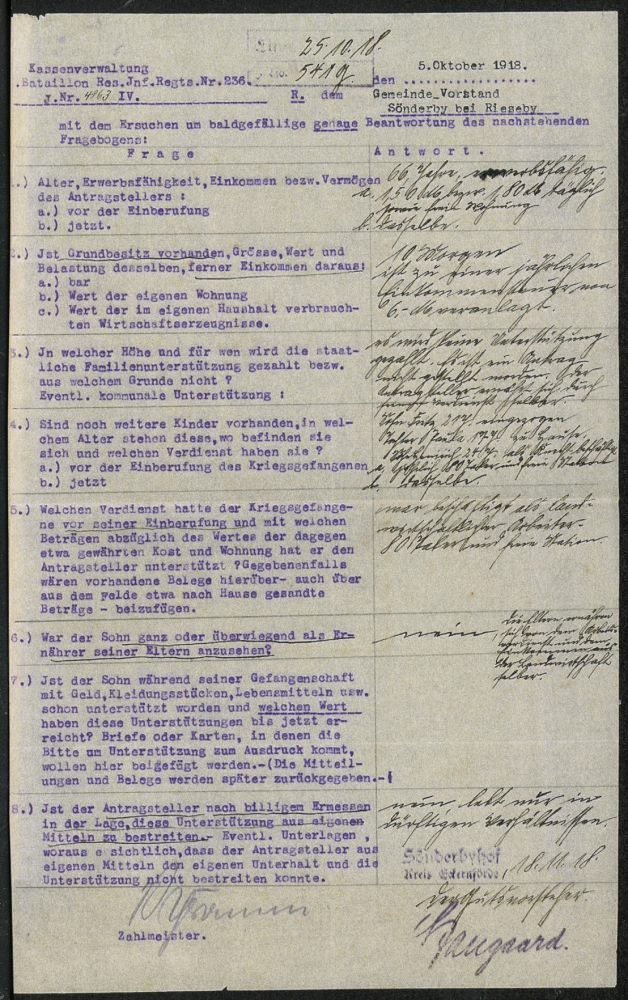 25.10.18.
5419
Kassenverwaltung
.Bataillon Res.Jnf.Regts.Nr.236.
J.Nr. 4163 IV.
den
5.Oktober 1918.
R. dem
Gemeinde_Vorstand
Sönderby bei Rieseby
mit dem Ersuchen um baldgefällige genaue Beantwortung des nachstehenden
Fragebogens:
F r a g e
A n t w o r t .
.) Alter,Erwerbsfähigkeit,Einkommen bezw.Vermögen
des Antragstellers :
a.) vor der Einberufung
b.) jetzt.
66 Jahre, erwerbsfähig.
a. 1,50 M bezw. 1,80 M täglich
sowie freie Wohnung
b. dasselbe.
.) Jst Grundbesitz vorhanden,Grösse,Wert und
Belastung desselben,ferner Einkommen daraus:
a.) bar
b.) Wert der eigenen Wohnung
c.) Wert der im eigenen Haushalt verbrauch-
ten Wirtschaftserzeugnisse.
10 Morgen
ist zu einer jährlichen
Einkommensteuer von
6,- M veranlagt.
3.) Jn welcher Höhe und für wen wird die staat-
liche Familienunterstützung gezahlt bezw.
aus welchem Grunde nicht ?
Eventl. kommunale Unterstützung :
es wird keine Unterstützung
gezahlt. Es ist ein Antrag
nicht gestellt worden. Der
Antragsteller ernährt sich durch
selber.
4.) Sind noch weitere Kinder vorhanden,in wel-
chem Alter stehen diese,wo befinden sie
sich und welchen Verdienst haben sie ?
a.) vor der Einberufung des Kriegsgefangenen
b.) jetzt
Sohn 21 J. eingezogen
17 J. zu Hause,
als Knecht beschäftigt
a. 80 Taler und freie Station
b. dasselbe.
5.) Welchen Verdienst hatte der Kriegsgefange-
ne vor seiner Einberufung und mit welchen
Beträgen abzüglich des Wertes der dagegen
etwa gewährten Kost und Wohnung hat er den
Antragsteller unterstützt ?Gegebenenfalls
wären vorhandene Belege hierüber- auch über
aus dem Felde etwa nach Hause gesandte
Beträge - beizufügen.
war beschäftigt als land-
wirtschaftlicher Arbeiter.
80 Taler und freie Station.
6.) War der Sohn ganz oder überwiegend als Er-
nährer seiner Eltern anzusehen?
nein, die Eltern ernähren
sich von dem Arbeits-
verdienst und dem
Einkommen aus
der Landwirtschaft
selber.
7.) Jst der Sohn während seiner Gefangenschaft
mit Geld,Kleidungsstücken,Lebensmitteln usw.
schon unterstützt worden und welchen Wert
haben diese Unterstützungen bis jetzt er-
reicht? Briefe oder Karten, in denen die
Bitte um Unterstützung zum Ausdruck kommt,
wollen hier beigefügt werden.-(Die Mitteil-
ungen und Belege werden später zurückgegeben.-(
8.) Jst der Antragsteller nach billigem Ermessen
in der Lage,diese Unterstützung aus eigenen
Mitteln zu bestreiten.- Eventl. Unterlagen ,
woraus e sichtlich,dass der Antragsteller aus
eigenen Mitteln den eigenen Unterhalt und die
Unterstützung nicht bestreiten konnte.
nein lebt nur in
dürftigen Verhältnissen.
Sönderbyhof
Kreis Eckernförde, 18.11.18.
Der Gutsvorsteher.
Zahlmeister.